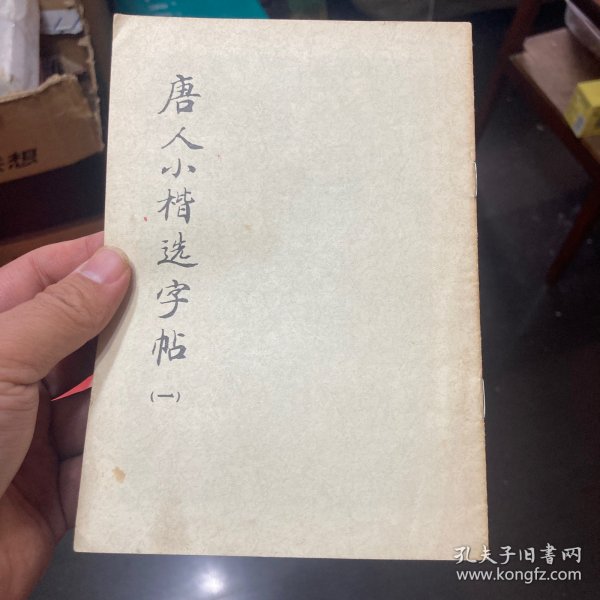 唐人小楷选字帖
(一)
想
孔夫子旧書网
www.kongfz.com